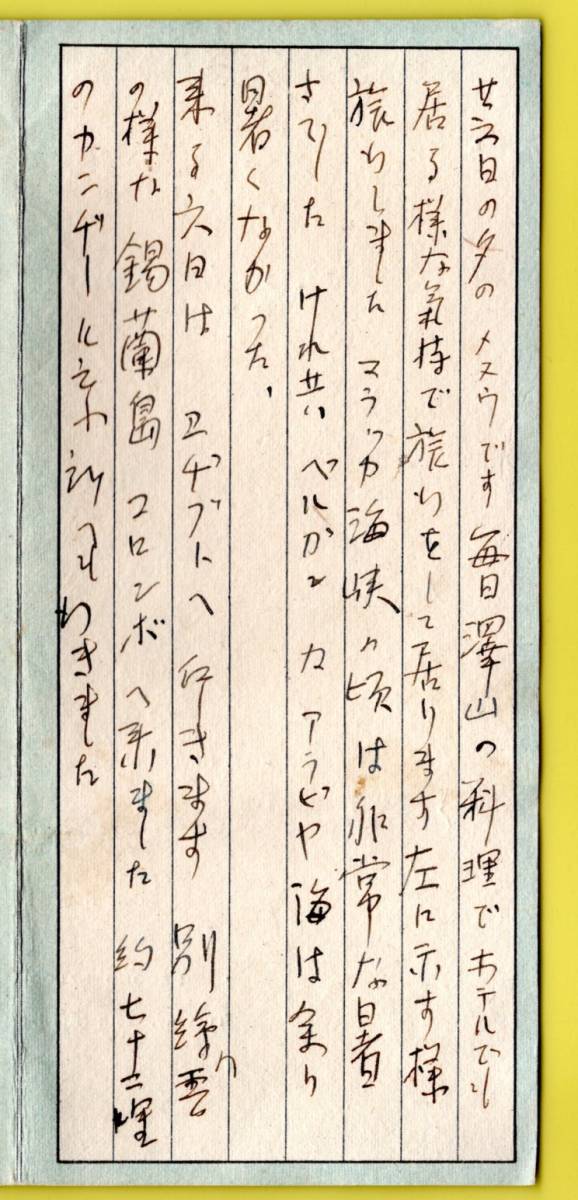 廿六日の夕のメヌウです 毎日澤山の料理でホテルでも
居る様な氣持で旅行をして居ります 左に示す様
旅行しました マラッカ海峡の頃は非常な暑
さでした けれ共 ベルガン カ アラビヤ海は余り
暑くなかった、
来る六日は エヂプトへ 行きます 別
の様な 錫蘭島 コロンボへ来ました 約七十二哩
のカンデー 行きました